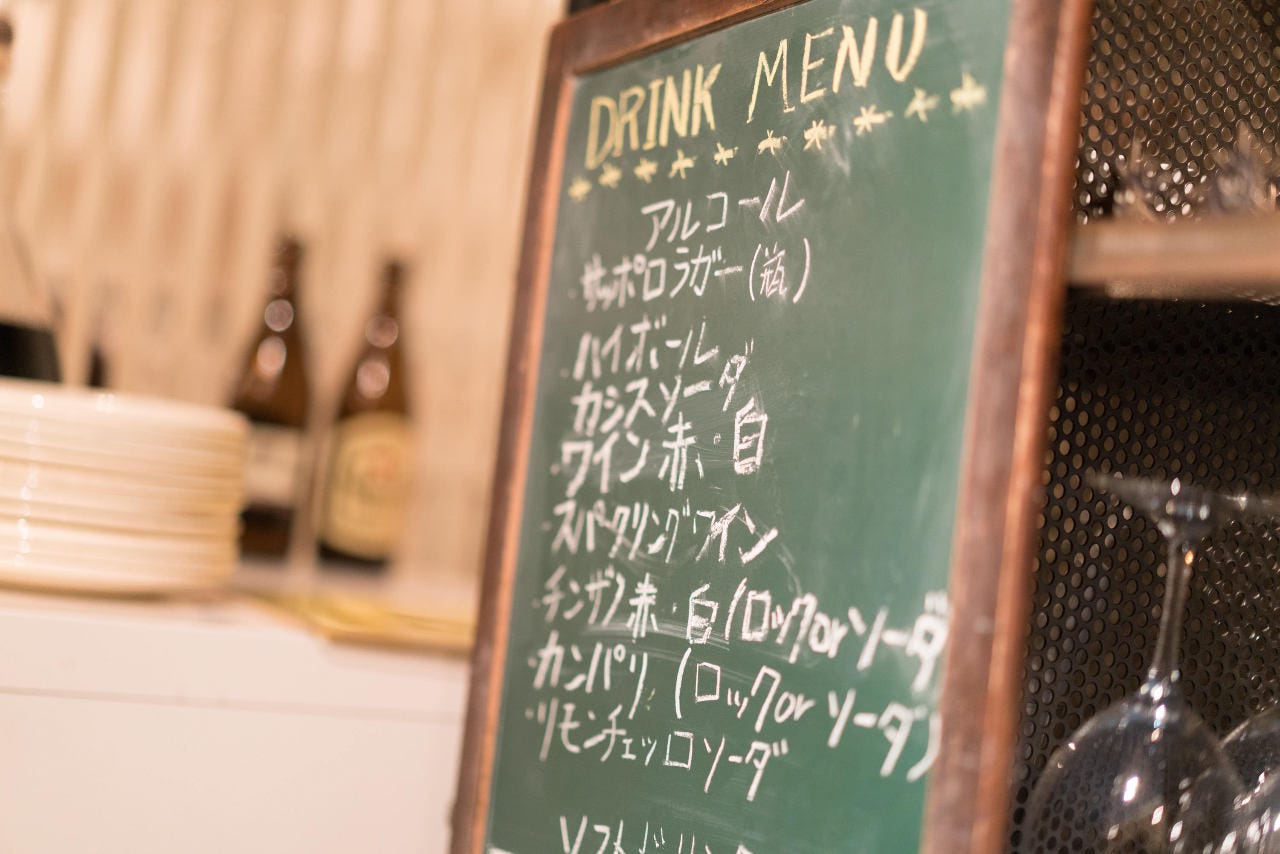 DRINK MENU
アルコール
・サッポロラガー(瓶)
・ハイボール
・カシスソーダ
・ワイン 赤・白
・スパークリングワイン
・チンザノ 赤・白(ロック or ソーダ
・カンパリ (ロック or ソーダ)
・リモンチェッロソーダ
ソフトドリンク